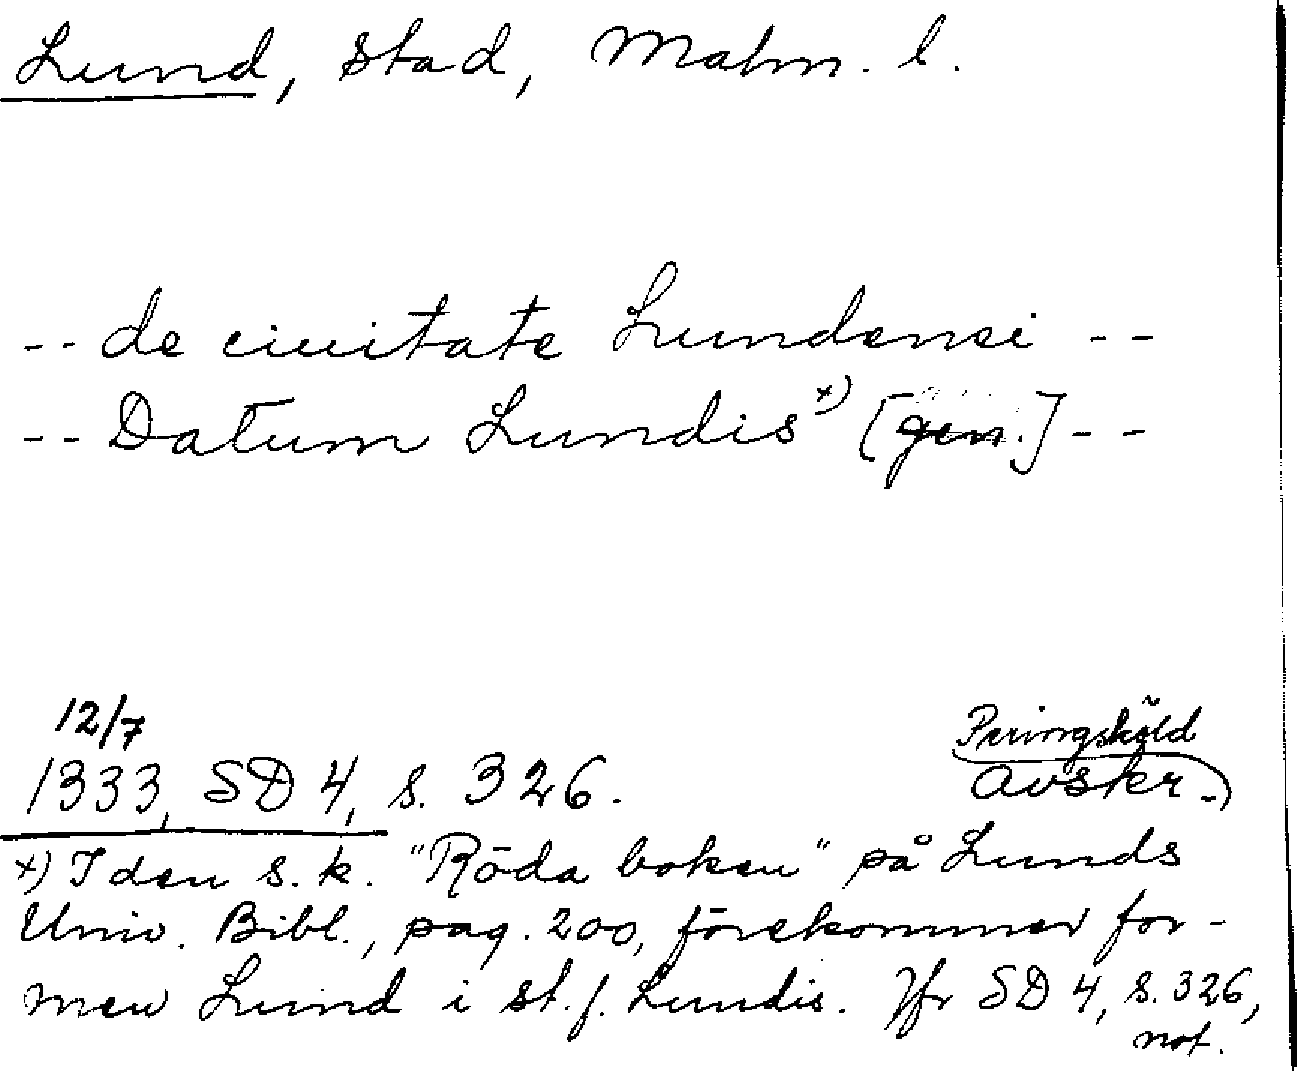 Lund, stad, Malm. l.
-- de ciuitate Lundensi --
-- Datum Lundis x) [gen.] --
12/7
1333, SD 4, s. 326.
Peringsköld
avskr.
x) I den s.k. "Röda boken" på Lunds
Univ. Bibl., pag. 200, förekommer for-
men Lund i st.f. Lundis. Jfr SD 4, s. 326,
not.